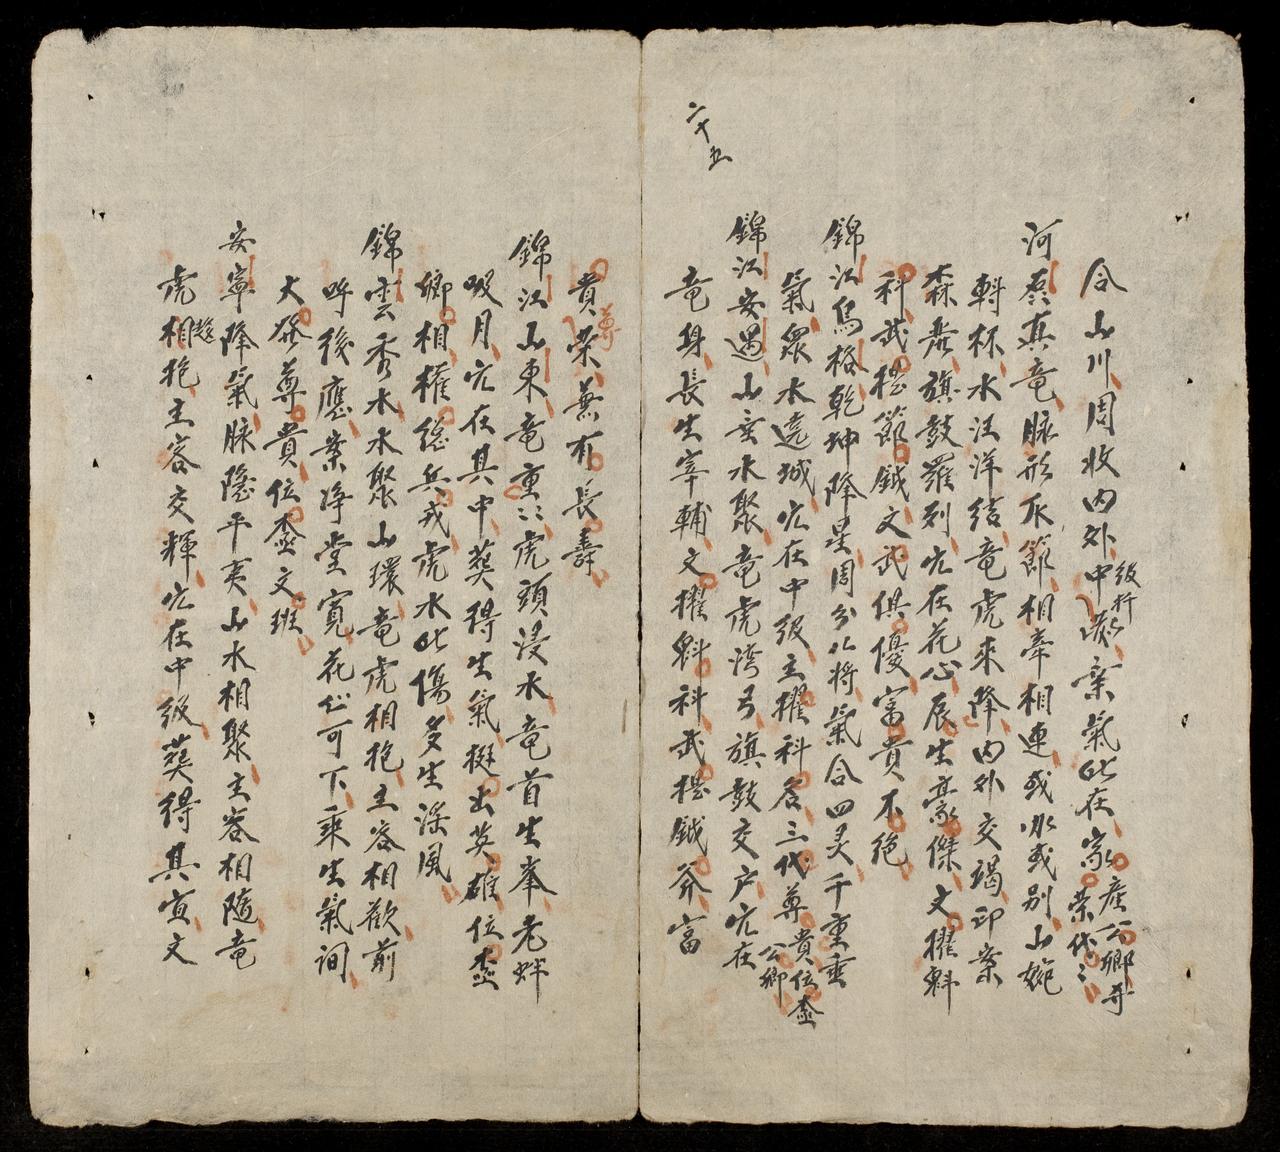 二十五
合山川周收内外中瀦案氣此在家産公鄉并
級折
榮代〻
河㶚真竜脉形爪節相牽相連或水或别山婉
斡杯水汪洋結竜虎來降内外交竭印案
森差旗鼓羅列穴在花心辰生豪傑文擢魁
科武抱節鉞文武俱優富貴不絶
錦江烏格乾坤降星周分八將氣合四灵千重垂
氣衆水遶城穴在中級主擢科名三代尊貴位壺
公卿
錦江安遇山壺水聚竜虎湾弓旗鼓交户穴在
竜身長生宰輔文擢魁科武抱鉞斧富
貴榮兼有長壽
尊
錦江山東竜重〻虎頭浸水竜首生峯老蚌
吸月穴在其中葬得生氣挺出英雄位壺
卿相權總兵戎虎水此傷多生滛風
錦雲秀水水聚山環竜虎相抱主客相歡前
呼後應案净堂寬花心可下乘生氣洞
大發尊貴位壺文班
安寧降氣脉隱平夷山水相聚主客相隨竜
虎相抱主客交輝穴在中級葬得其宜文
趂